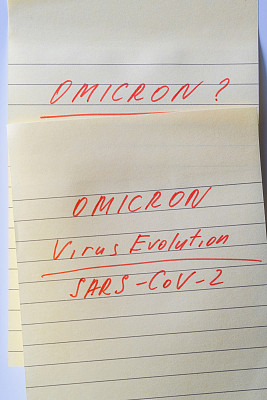 OMICRON ?
OMICRON
Virus Evolution
SARS-CoV-2